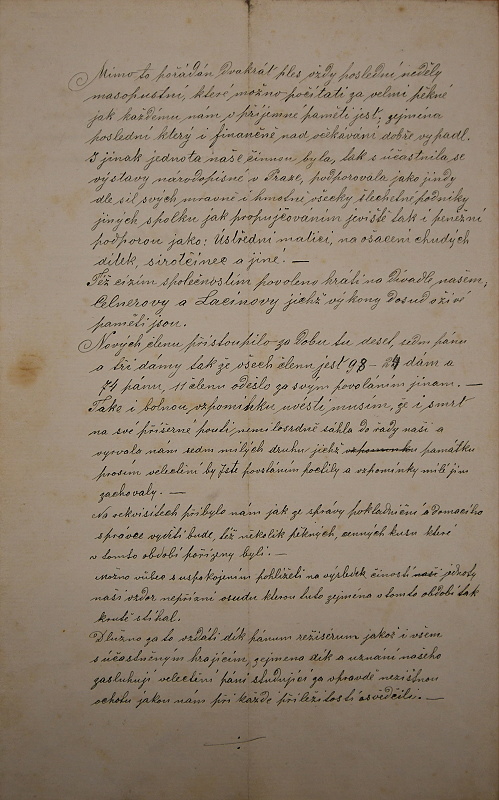 Mimo to pořádán dvakrát ples vždy poslední neděly
masopustní, které možno počítati za velmi pěkné
jak každému nám v příjemné paměti jest, zejména
poslední který i finančně nad očekávání dobře vypadl.
I jinak jednota naše činnou byla, tak súčastnila se
výstavy národopisné v Praze, podporovala jako jindy
dle sil svých, mravně i hmotně všecky šlechetné podniky
jiných spolku jak propujčováním jeviště tak i peněžní
podporou jako: Ústřední matici, na ošacení chudých
dítek, sirotčinec a jiné. —
Též cizím společnostím povoleno hráti na Divadle našem,
Celnerovy a Lacinovy jichž výkony dosud oživi
paměti jsou.
Nových členu přistoupilo za Dobu tu deset, sedm pánu
a tři dámy tak že všech členu jest 98 – 24 dám a
74 pánu, 11 členu odešlo za svým povoláním jinam. —
Tako i bolnou vzpomínku uvésti musím, že i smrt
na své příšerné pouti nemilosrdně sáhla do řady naší a
vyrvala nám sedm milých druhu jichž vzpomínku památku
prosím velectění by Jste povstáním poctily a vzpomínky milé jim
zachovaly. —
Na rekvisitech přibylo nám jak ze správy pokladniční a domácího
správce vyjíti bude, též několik pěkných, cenných kusu které
v tomto období pořízeny byli. —
Možno vůbec s uspokojením pohlížeti na výsledek činosti naší jednoty
naší vzdor nepřízni osudu kterou tuto zejména v tomto období tak
krutě stíhal.
Dlužno za to vzdáti dík pánum režisérum jakož i všem
súčastněným hrajícím, zejména dík a uznání našeho
zasluhují velectění páni studující za vpravdě nezištnou
ochotu jakou nám při každé příležitosti osvědčili. —